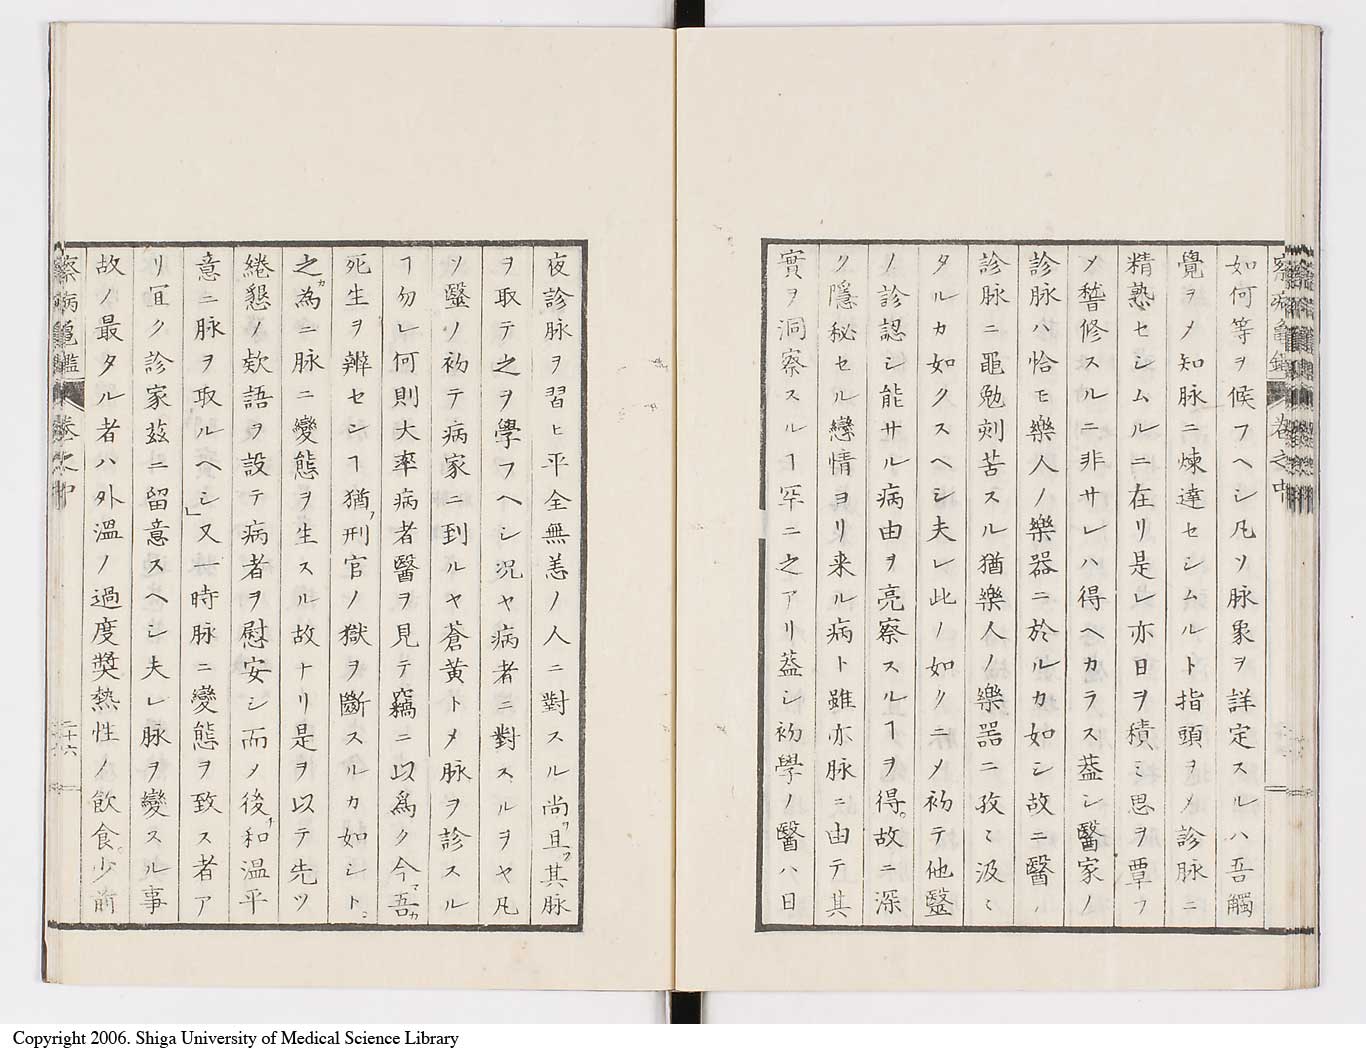 察病亀鑑 巻之中
如何等ヲ候フヘシ凡ソ脉象ヲ詳定スルハ吾觸
覺ヲメ知脉ニ煉達セシムルト指頭ヲメ診脉ニ
精熟セシムルニ在リ是レ亦日ヲ積ミ思ヲ覃フ
メ誊修スルニ非サレハ得ヘカラス葢シ醫家ノ
診脉ハ恰モ樂人ノ樂器ニ於ルカ如シ故ニ醫ノ
診脉ニ黽勉刻苦スル猶樂人ノ樂器ニ孜〻汲〻
タルカ如クスヘシ夫レ此ノ如クニメ初テ他醫
ノ診認シ能サル病由ヲ亮察スルヿヲ得。故ニ深
ク隱秘セル戀情ヨリ来ル病ト雖亦脉ニ由テ其
實ヲ洞察スルヿ罕ニ之アリ葢シ初學ノ醫ハ日
夜診脉ヲ習ヒ平全無恙ノ人ニ對スル尚且其脉
ヲ取テ之ヲ學フヘシ况ヤ病者ニ對スルヲヤ凡
ソ醫ノ初テ病家ニ到ルヤ蒼黄トメ脉ヲ診スル
ヿ勿レ何則大率病者醫ヲ見テ竊ニ以爲ク今吾
死生ヲ辨セシヿ猶刑官ノ獄ヲ斷スルカ如シト
之為ニ脉ニ變態ヲ生スル故ナリ是ヲ以テ先ツ
綣懇ノ欵語ヲ設テ病者ヲ慰安シ而メ後和温平
意ニ脉ヲ取ルヘシ」又一時脉ニ變態ヲ致ス者ア
リ冝ク診家茲ニ留意スヘシ夫レ脉ヲ變スル事
故ノ最タル者ハ外溫ノ過度奬熱性ノ飲食。少前
察病亀鑑 巻之中 二十六
Copyright 2006. Shiga University of Medical Science Library